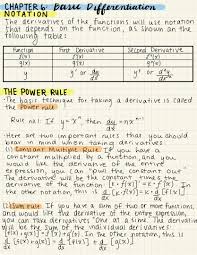 CHAPTER 6: Basic Differentiation
NOTATION
• The derivatives of the functions will use notation
that depends on the function, as shown on the
following table:
Function First Derivative Second Derivative
f(x) f'(x) f''(x)
g(x) g'(x) g''(x)
y y' or dy/dx y'' or d²y/dx²
THE POWER RULE
• The basic technique for taking a derivative is called
the Power Rule
Rule no.1: If y = xⁿ, then dy/dx = nxⁿ⁻¹
• Here are two important rules that you should
bear in mind when taking derivatives:
(1) Constant Multiple Rule: If you have a
constant multiplied by a function, and you
would like the derivative of the entire
expression, you can "pull the constant out"
the derivative will be the constant times the
derivative of the function. [k·f(x)]' = k·f'(x). In
the other notation, this is d/dx[k·f(x)] = k·d/dx f(x)
(2) Sum rule: If you have a sum of two or more functions,
and would like the derivative of the entire expression,
you can take derivatives "one at a time." The derivative
will be the sum of the individual derivatives:
[f(x)+g(x)]' = f'(x)+g'(x). In the other notation, this is
d/dx[f(x)+g(x)] = d/dx f(x) + d/dx g(x)